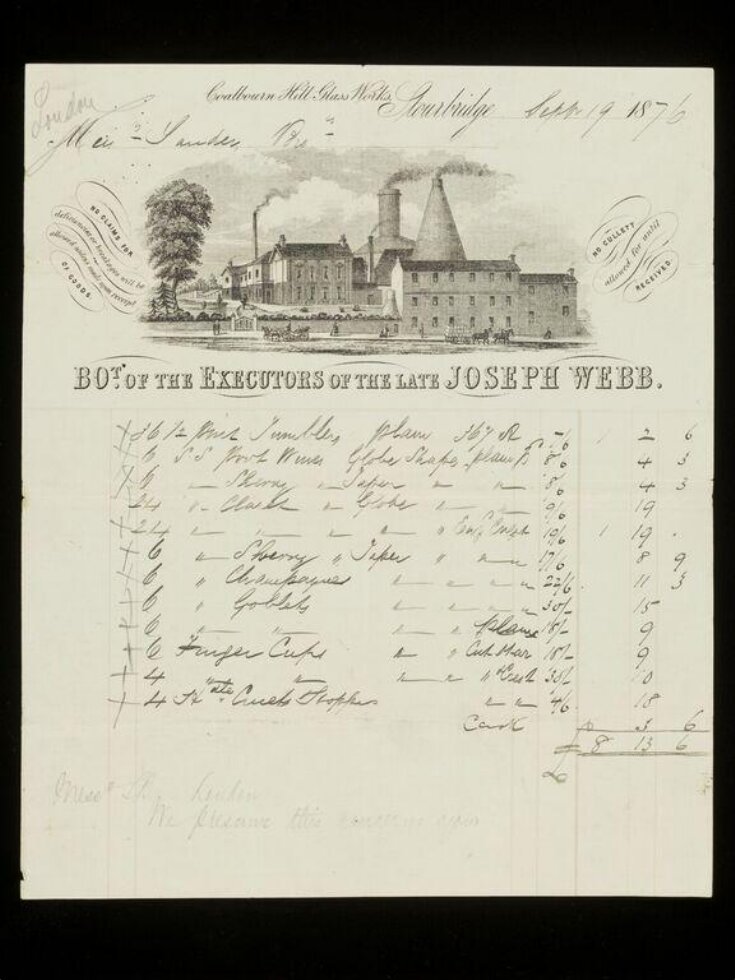 London
Coalbourn Hill Glass Works,
Stourbridge Sept 19 1876
Messrs Sander Bros
NO CLAIMS FOR
deficiencies or breakages will be
allowed unless made upon receipt
OF GOODS.
NO CULLETT
allowed for until
RECEIVED.
BOT. OF THE EXECUTORS OF THE LATE JOSEPH WEBB.
36 1/2 Pint Tumblers plain 367 7/6 1 2 6
6 S S Port Wines Globe Shape plain 8/6 4 3
6 " Sherry " Taper " " 8/6 4 3
24 " Claret " Globe " " 9/6 19
24 " " " " " 19/6 1 19 .
6 " Sherry " Taper " " 17/6 8 9
6 " Champagnes " " " " 22/6 11 3
6 " Goblets " " " " 30/- 15
6 " " " " plain 18/- 9
6 Finger Cups " " Cut Star 18/- 9
4 " " " " " 30/- 10
4 Cruets Stoppers " " 4/6 18
Cask 3 6
£ 8 13 6
Mess London
We presume this concerns you